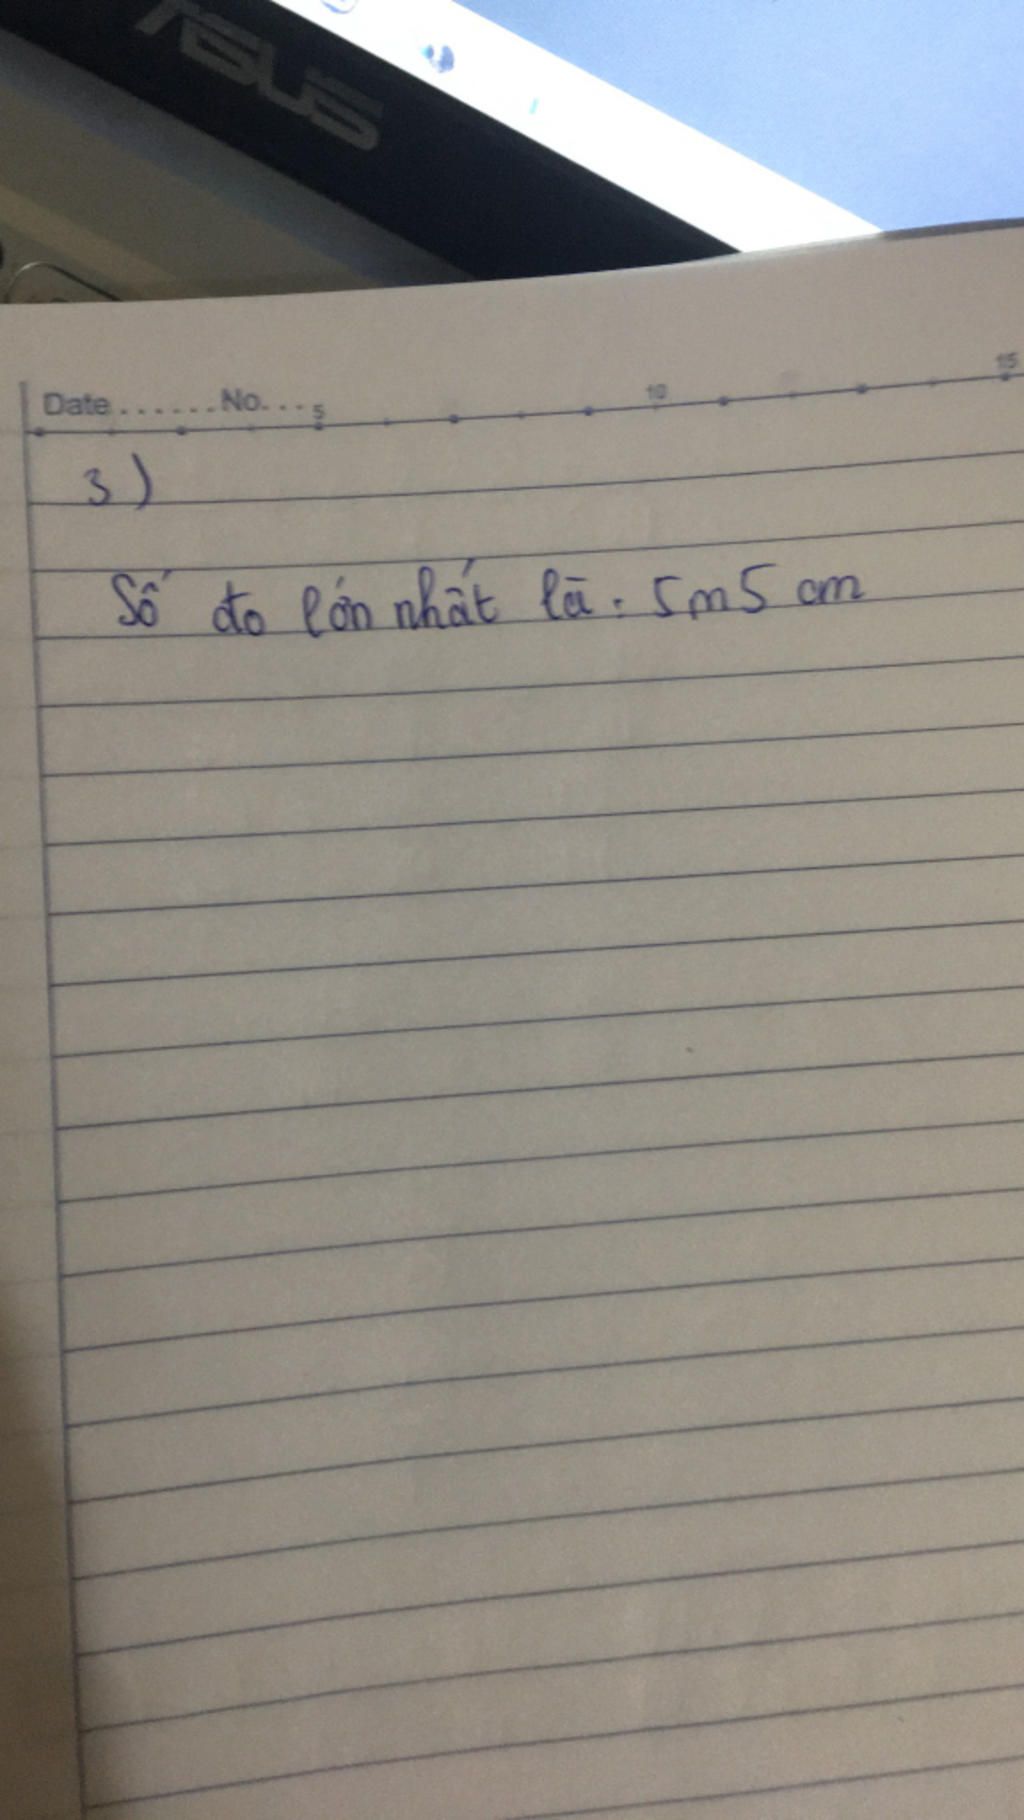 ASUS
Date......No...
5
10
15
3)
Số đo lớn nhất là: 5m5 cm